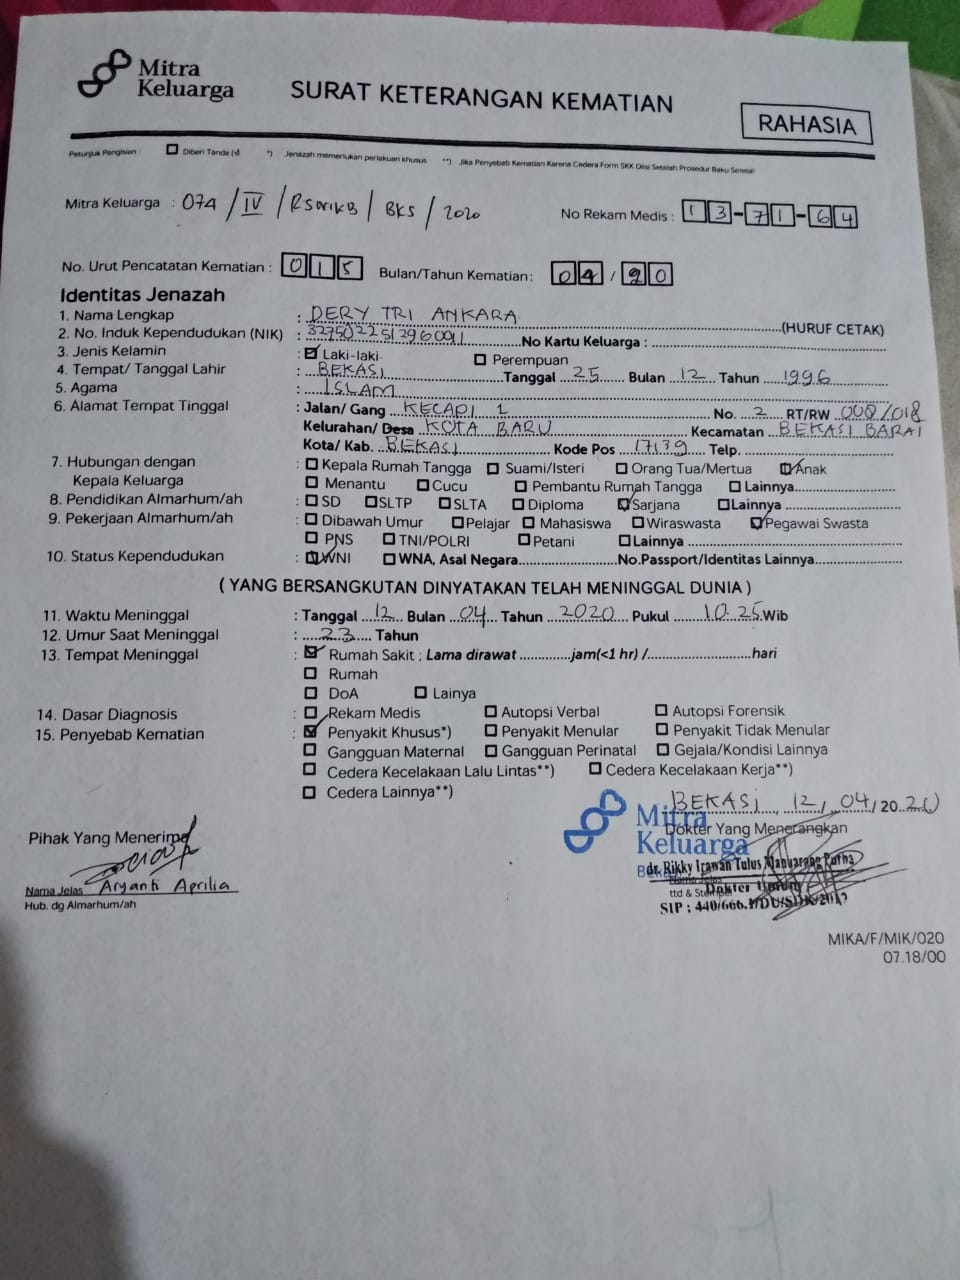 Mitra
Keluarga
SURAT KETERANGAN KEMATIAN
RAHASIA
Petunjuk Pengisian : ☐ Diberi Tanda (√) *) Jenazah memerlukan perlakuan khusus **) Jika Penyebab Kematian Karena Cedera Form SKK Diisi Setelah Prosedur Baku Selesai
Mitra Keluarga : 074 / IV / RSMKB / BKS / 2020 No Rekam Medis : 13-71-64
No. Urut Pencatatan Kematian : 015 Bulan/Tahun Kematian : 04 / 20
Identitas Jenazah
1. Nama Lengkap : DERY TRI ANKARA (HURUF CETAK)
2. No. Induk Kependudukan (NIK) : 3275022512960091 No Kartu Keluarga :
3. Jenis Kelamin : ☑ Laki-laki ☐ Perempuan
4. Tempat/ Tanggal Lahir : BEKASI Tanggal 25 Bulan 12 Tahun 1996
5. Agama : ISLAM
6. Alamat Tempat Tinggal : Jalan/ Gang KECAPI 1 No. 2 RT/RW 008/018
Kelurahan/ Desa KOTA BARU Kecamatan BEKASI BARAT
Kota/ Kab. BEKASI Kode Pos 17139 Telp.
7. Hubungan dengan Kepala Keluarga : ☐ Kepala Rumah Tangga ☐ Suami/Isteri ☐ Orang Tua/Mertua ☑ Anak
☐ Menantu ☐ Cucu ☐ Pembantu Rumah Tangga ☐ Lainnya
8. Pendidikan Almarhum/ah : ☐ SD ☐ SLTP ☐ SLTA ☐ Diploma ☑ Sarjana ☐ Lainnya
9. Pekerjaan Almarhum/ah : ☐ Dibawah Umur ☐ Pelajar ☐ Mahasiswa ☐ Wiraswasta ☑ Pegawai Swasta
☐ PNS ☐ TNI/POLRI ☐ Petani ☐ Lainnya
10. Status Kependudukan : ☑ WNI ☐ WNA, Asal Negara No.Passport/Identitas Lainnya
( YANG BERSANGKUTAN DINYATAKAN TELAH MENINGGAL DUNIA )
11. Waktu Meninggal : Tanggal 12 Bulan 04 Tahun 2020 Pukul 10.25 Wib
12. Umur Saat Meninggal : 23 Tahun
13. Tempat Meninggal : ☑ Rumah Sakit ; Lama dirawat ............jam(<1 hr) /............hari
☐ Rumah
☐ DoA ☐ Lainya
14. Dasar Diagnosis : ☐ Rekam Medis ☐ Autopsi Verbal ☐ Autopsi Forensik
15. Penyebab Kematian : ☑ Penyakit Khusus*) ☐ Penyakit Menular ☐ Penyakit Tidak Menular
☐ Gangguan Maternal ☐ Gangguan Perinatal ☐ Gejala/Kondisi Lainnya
☐ Cedera Kecelakaan Lalu Lintas**) ☐ Cedera Kecelakaan Kerja**)
☐ Cedera Lainnya**)
BEKASI, 12/04/2020
Pihak Yang Menerima
Dokter Yang Menerangkan
Mitra
Keluarga
dr. Rikky Irawan Tulus
Nama Jelas Aryanti Aprilia
Hub. dg Almarhum/ah
ttd &
Dokter Umum
SIP :
MIKA/F/MIK/020
07.18/00